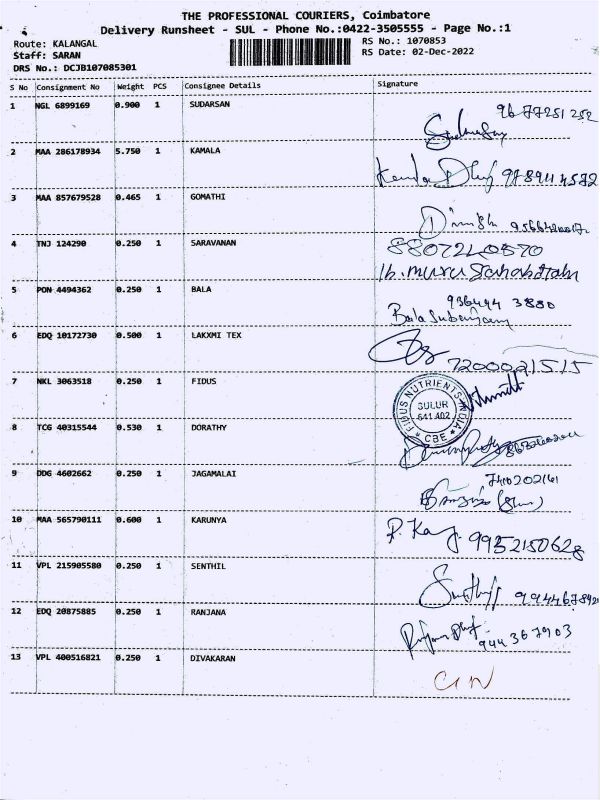 THE PROFESSIONAL COURIERS, Coimbatore
Delivery Runsheet - SUL - Phone No.:0422-3505555 - Page No.:1
Route: KALANGAL
RS No.: 1070853
Staff: SARAN
RS Date: 02-Dec-2022
DRS No.: DCJB107085301
S No Consignment No Weight PCS Consignee Details Signature
1 NGL 6899169 0.900 1 SUDARSAN
2 MAA 286178934 5.750 1 KAMALA
3 MAA 857679528 0.465 1 GOMATHI
4 TNJ 124290 0.250 1 SARAVANAN
8807240570
5 PON 4494362 0.250 1 BALA
936444 3880
6 EDQ 10172730 0.500 1 LAKXMI TEX
7200021515
7 NKL 3063518 0.250 1 FIDUS
FIDUS NUTRIENTS INDIA
SULUR
641 402
CBE
8 TCG 40315544 0.530 1 DORATHY
9 DDG 4602662 0.250 1 JAGAMALAI
10 MAA 565790111 0.600 1 KARUNYA
9952150628
11 VPL 215905580 0.250 1 SENTHIL
12 EDQ 20875885 0.250 1 RANJANA
13 VPL 400516821 0.250 1 DIVAKARAN